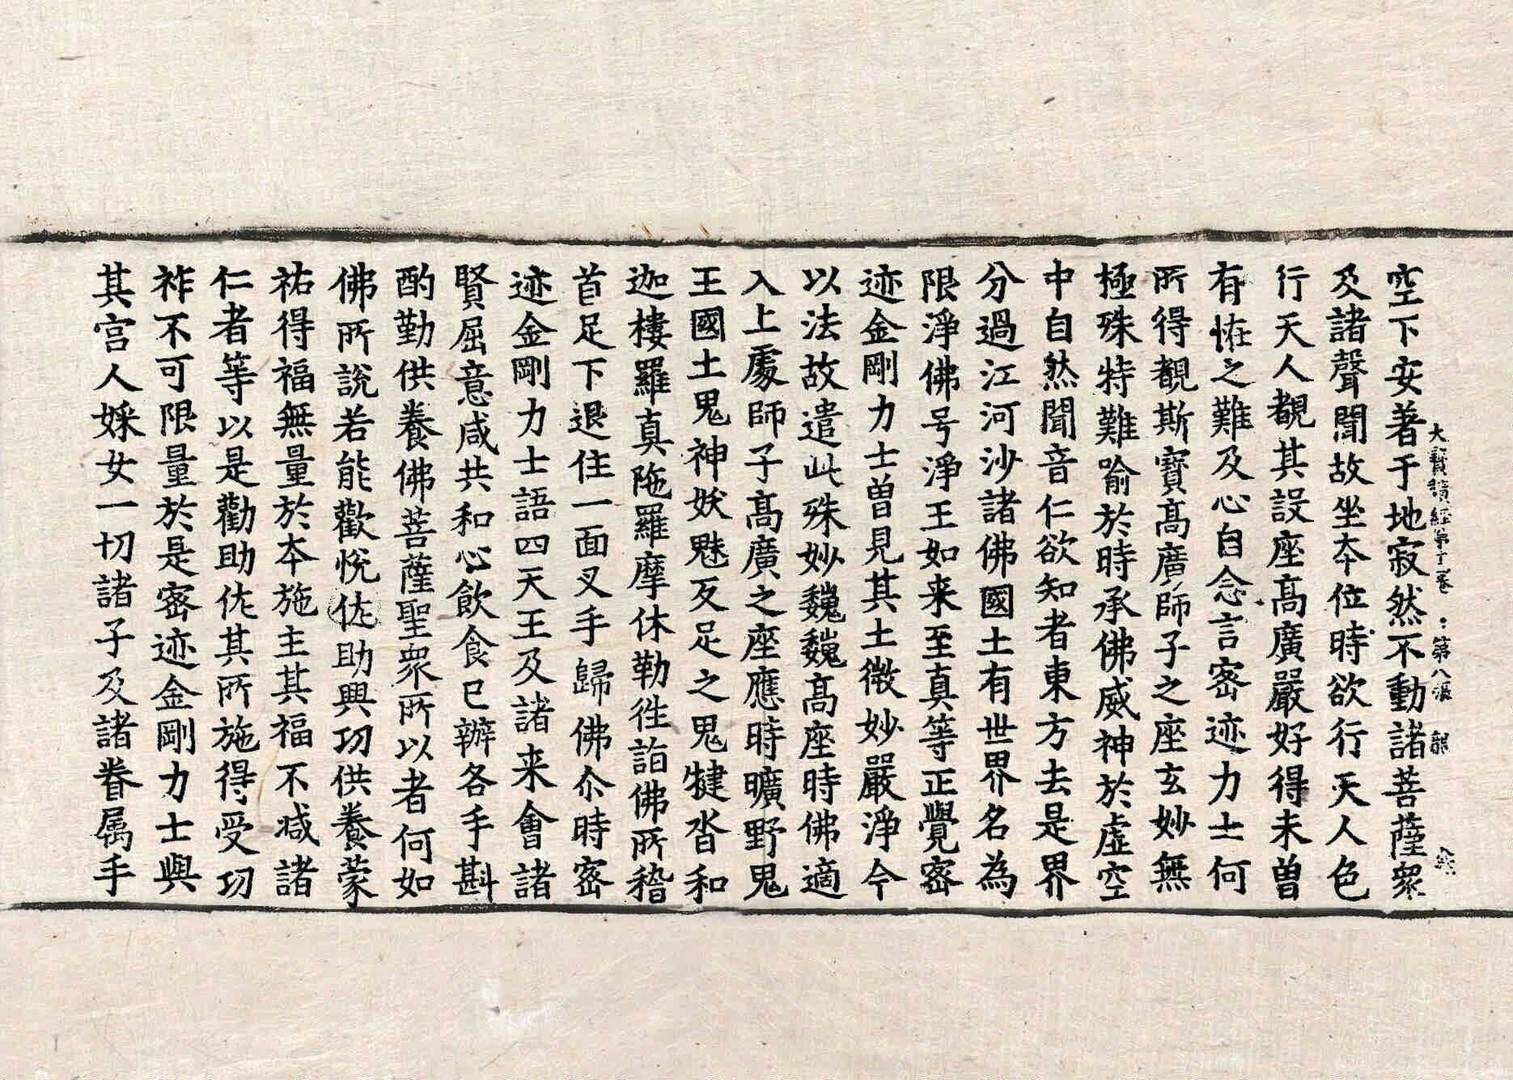 大寶積經第十二卷 第八張 龍
空下安著于地寂然不動諸菩薩衆
及諸聲聞故坐夲位時欲行天人色
行天人覩其設座高廣嚴好得未曾
有恠之難及心自念言密迹力士何
所得覩斯寶高廣師子之座玄妙無
極殊特難喻於時承佛威神於虛空
中自然聞音仁欲知者東方去是界
分過江河沙諸佛國土有世界名為
限淨佛号淨王如来至真等正覺密
迹金剛力士曾見其土微妙嚴淨今
以法故遣此殊妙巍巍高座時佛適
入上處師子高廣之座應時曠野鬼
王國土鬼神妖魅叐足之鬼揵沓和
迦樓羅真陁羅摩休勒徃詣佛所稽
首足下退住一面叉手歸佛尒時密
迹金剛力士語四天王及諸来會諸
賢屈意咸共和心飲食已辦各手斟
酌勤供養佛菩薩聖衆所以者何如
佛所說若能歡悅佐助興功供養蒙
祐得福無量於夲施主其福不减諸
仁者等以是勸助佐其所施得受功
祚不可限量於是密迹金剛力士與
其宫人婇女一切諸子及諸眷属手